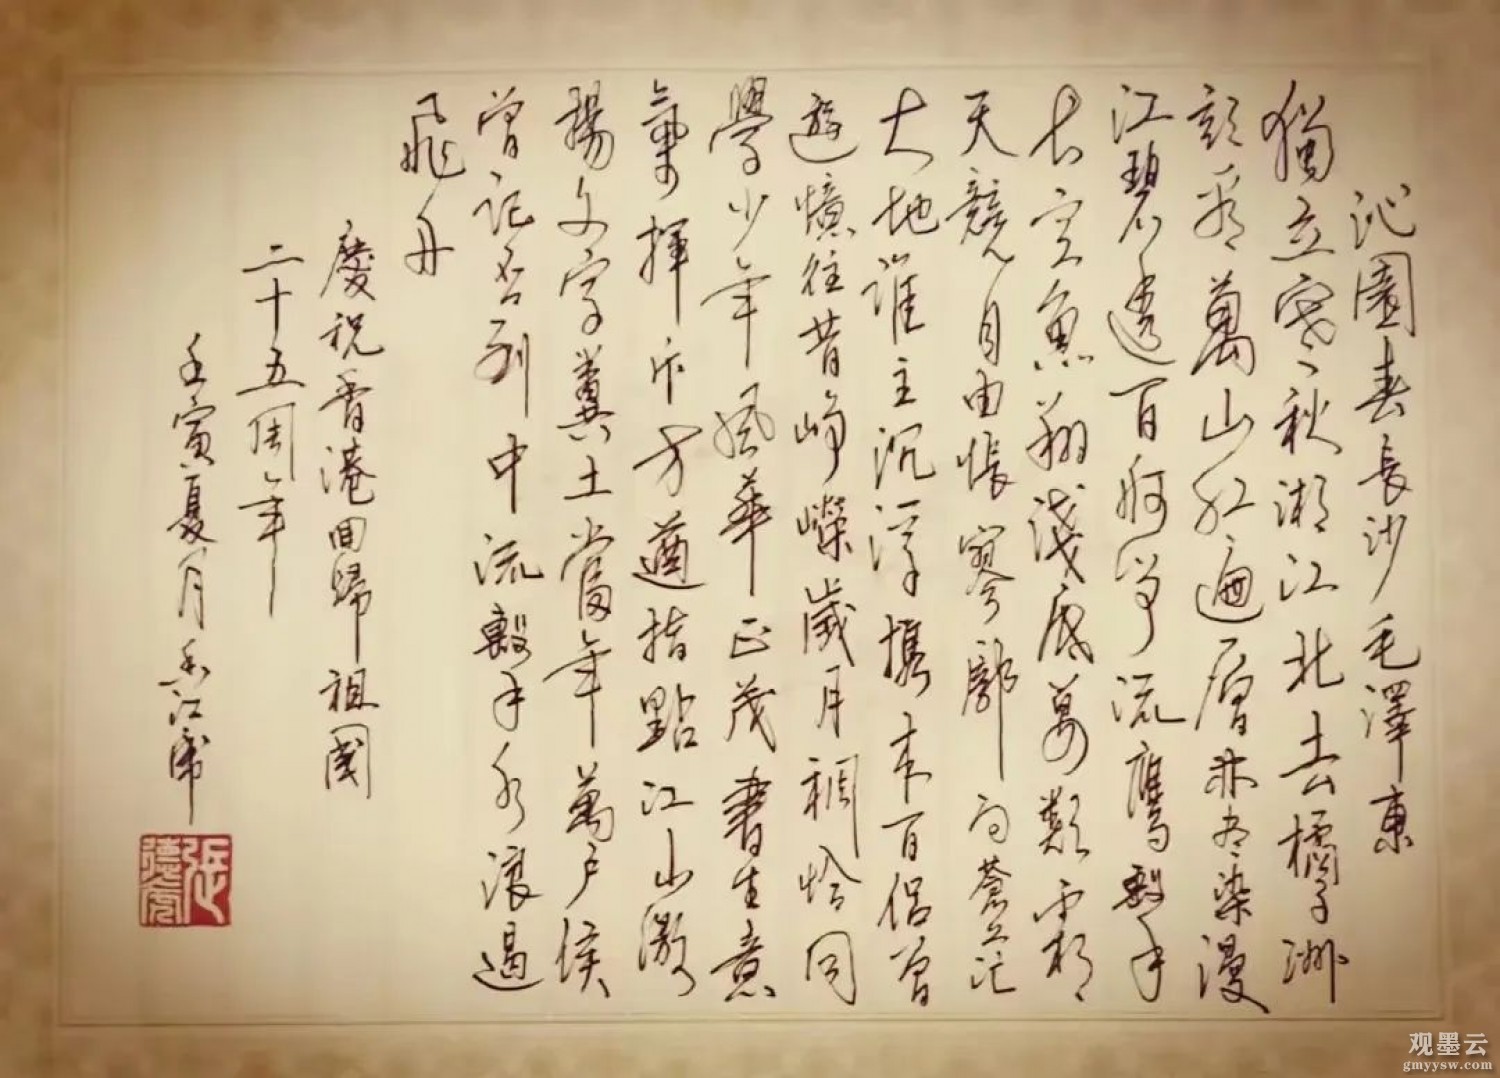 沁園春長沙毛澤東
獨立寒秋湘江北去橘子洲
頭看萬山紅遍層林尽染漫
江碧透百舸爭流鷹擊
長空魚翔淺底萬類霜
天競自由悵寥廓問蒼茫
大地誰主沉浮攜来百侶曾
遊憶往昔崢嶸歲月稠恰同
學少年風華正茂書生意
氣揮斥方遒指點江山激
揚文字糞土當年萬戶侯
曾記否到中流擊水浪遏
飛舟
慶祝香港回歸祖國
二十五周年
壬寅夏月香江
观墨云
gmyysw.com